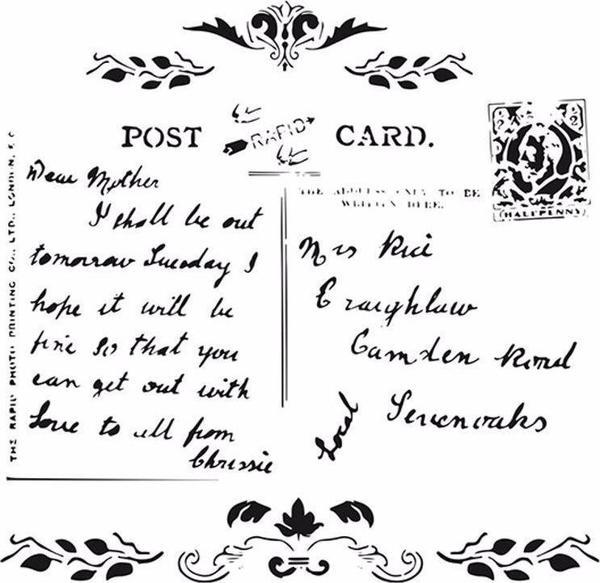 POST RAPID CARD.
Dear Mother
I shall be out
tomorrow Tuesday I
hope it will be
fine so that you
can get out with
Love to all from
Chrissie
THE ADDRESS ONLY TO BE
WRITTEN HERE.
Mrs Rice
Craighlaw
Camden Road
Sevenoaks
Local
HALFPENNY
THE RAPID PHOTO PRINTING CO., LTD., LONDON, E.C